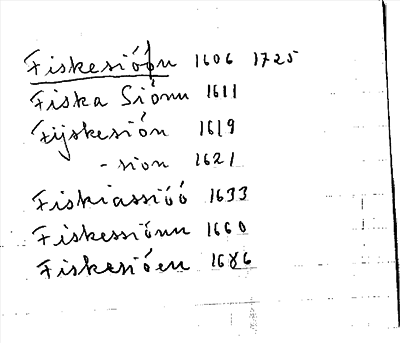 Fiskesióón 1606 1725
Fiska Siónn 1611
Fijskesión 1619
- sion 1621
Fiskiassióó 1633
Fiskessiónn 1660
Fiskesióen 1686